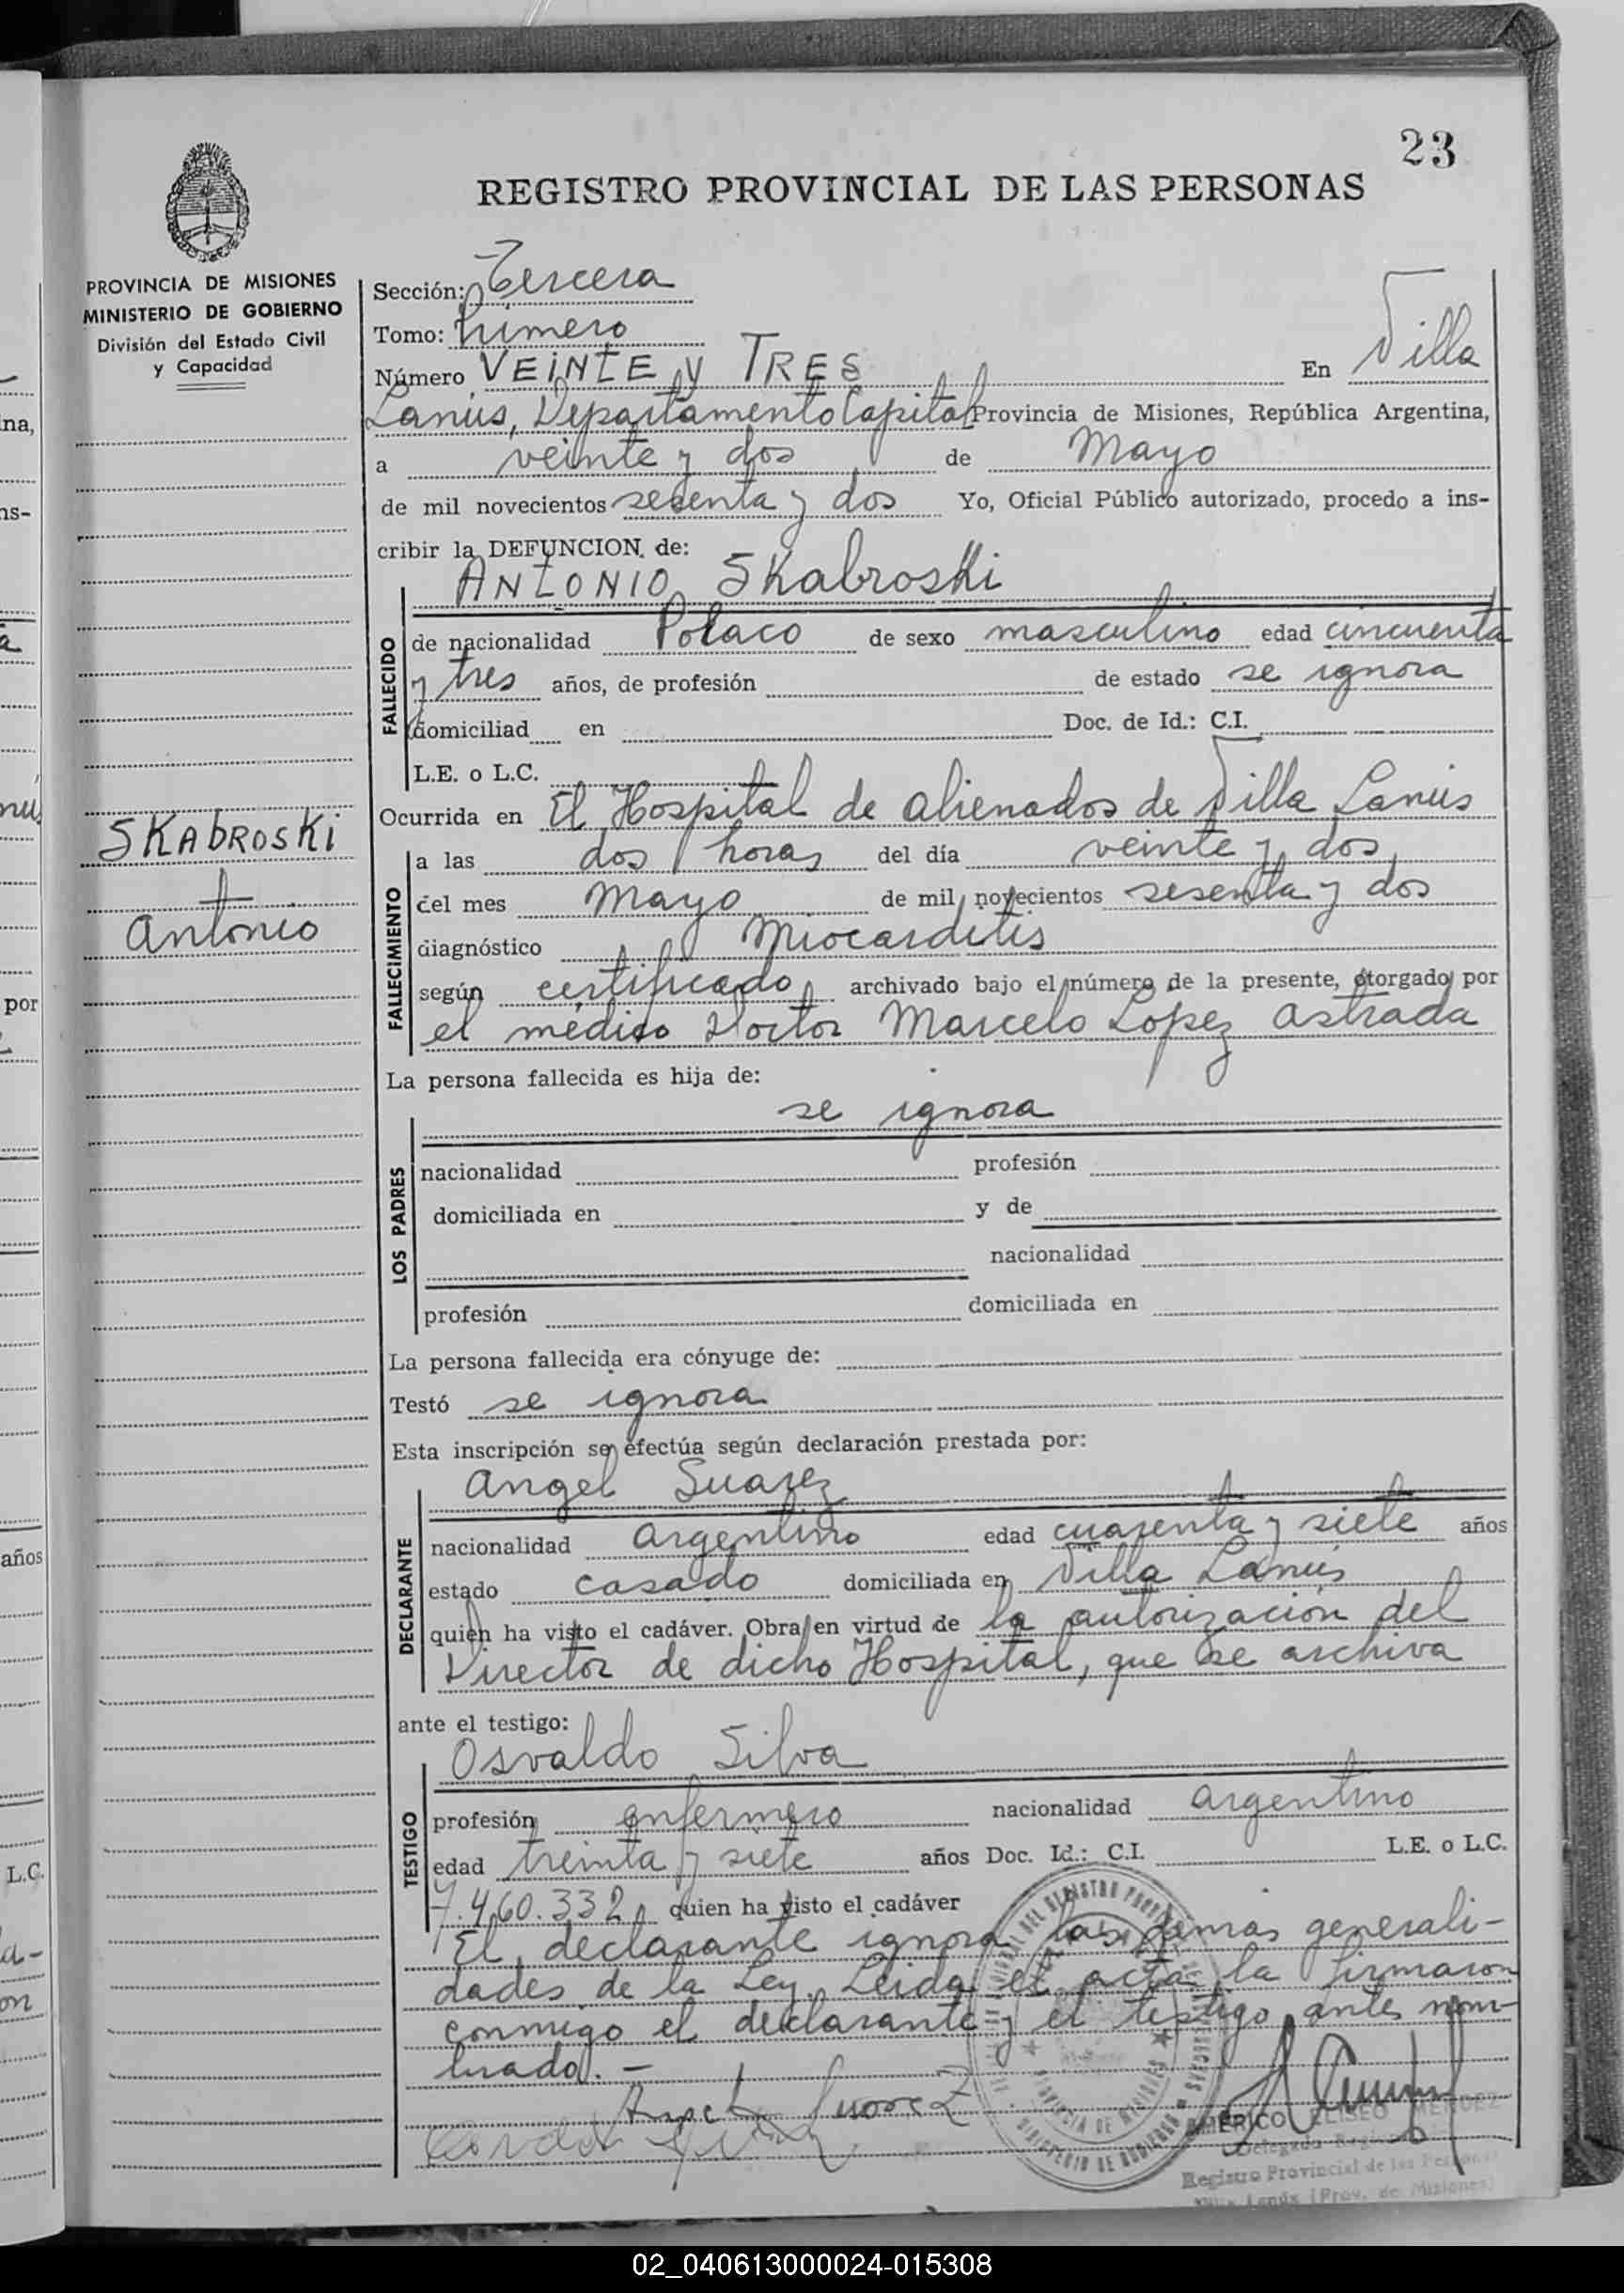 23
REGISTRO PROVINCIAL DE LAS PERSONAS
PROVINCIA DE MISIONES
MINISTERIO DE GOBIERNO
División del Estado Civil
y Capacidad
SKAbROSKi
Antonio
Sección: Tercera
Tomo: Primero
Número VEiNTE y TRES En Villa
Lanús, Departamento Capital Provincia de Misiones, República Argentina,
a veinte y dos de Mayo
de mil novecientos sesenta y dos Yo, Oficial Público autorizado, procedo a ins-
cribir la DEFUNCION de:
ANTONIO SKabroski
FALLECIDO
de nacionalidad Polaco de sexo masculino edad cincuenta
y tres años, de profesión de estado se ignora
domiciliad en Doc. de Id.: C.I.
L.E. o L.C.
Ocurrida en El Hospital de alienados de Villa Lanús
FALLECIMIENTO
a las dos horas del día veinte y dos
del mes Mayo de mil novecientos sesenta y dos
diagnóstico Miocarditis
según certificado archivado bajo el número de la presente, otorgado por
el médico Doctor Marcelo Lopez Astrada
La persona fallecida es hija de:
se ignora
LOS PADRES
nacionalidad profesión
domiciliada en y de
nacionalidad
profesión domiciliada en
La persona fallecida era cónyuge de:
Testó se ignora
Esta inscripción se efectúa según declaración prestada por:
Angel Suarez
DECLARANTE
nacionalidad Argentino edad cuarenta y siete años
estado casado domiciliada en Villa Lanús
quien ha visto el cadáver. Obra en virtud de la autorización del
Director de dicho Hospital, que se archiva
ante el testigo:
Osvaldo Silva
TESTIGO
profesión enfermero nacionalidad argentino
edad treinta y siete años Doc. Id.: C.I. L.E. o L.C.
7.460.332 quien ha visto el cadáver
El declarante ignora las demas generali-
dades de la Ley. Leida el acta la firmaron
conmigo el declarante y el testigo antes nom-
brado. -
Suarez
AMERICO ELISEO MENDEZ
Delegado
Registro Provincial de las Personas
Villa Lanús (Prov. de Misiones)
na,
ns-
por
años
L.C.
on
02_040613000024-015308